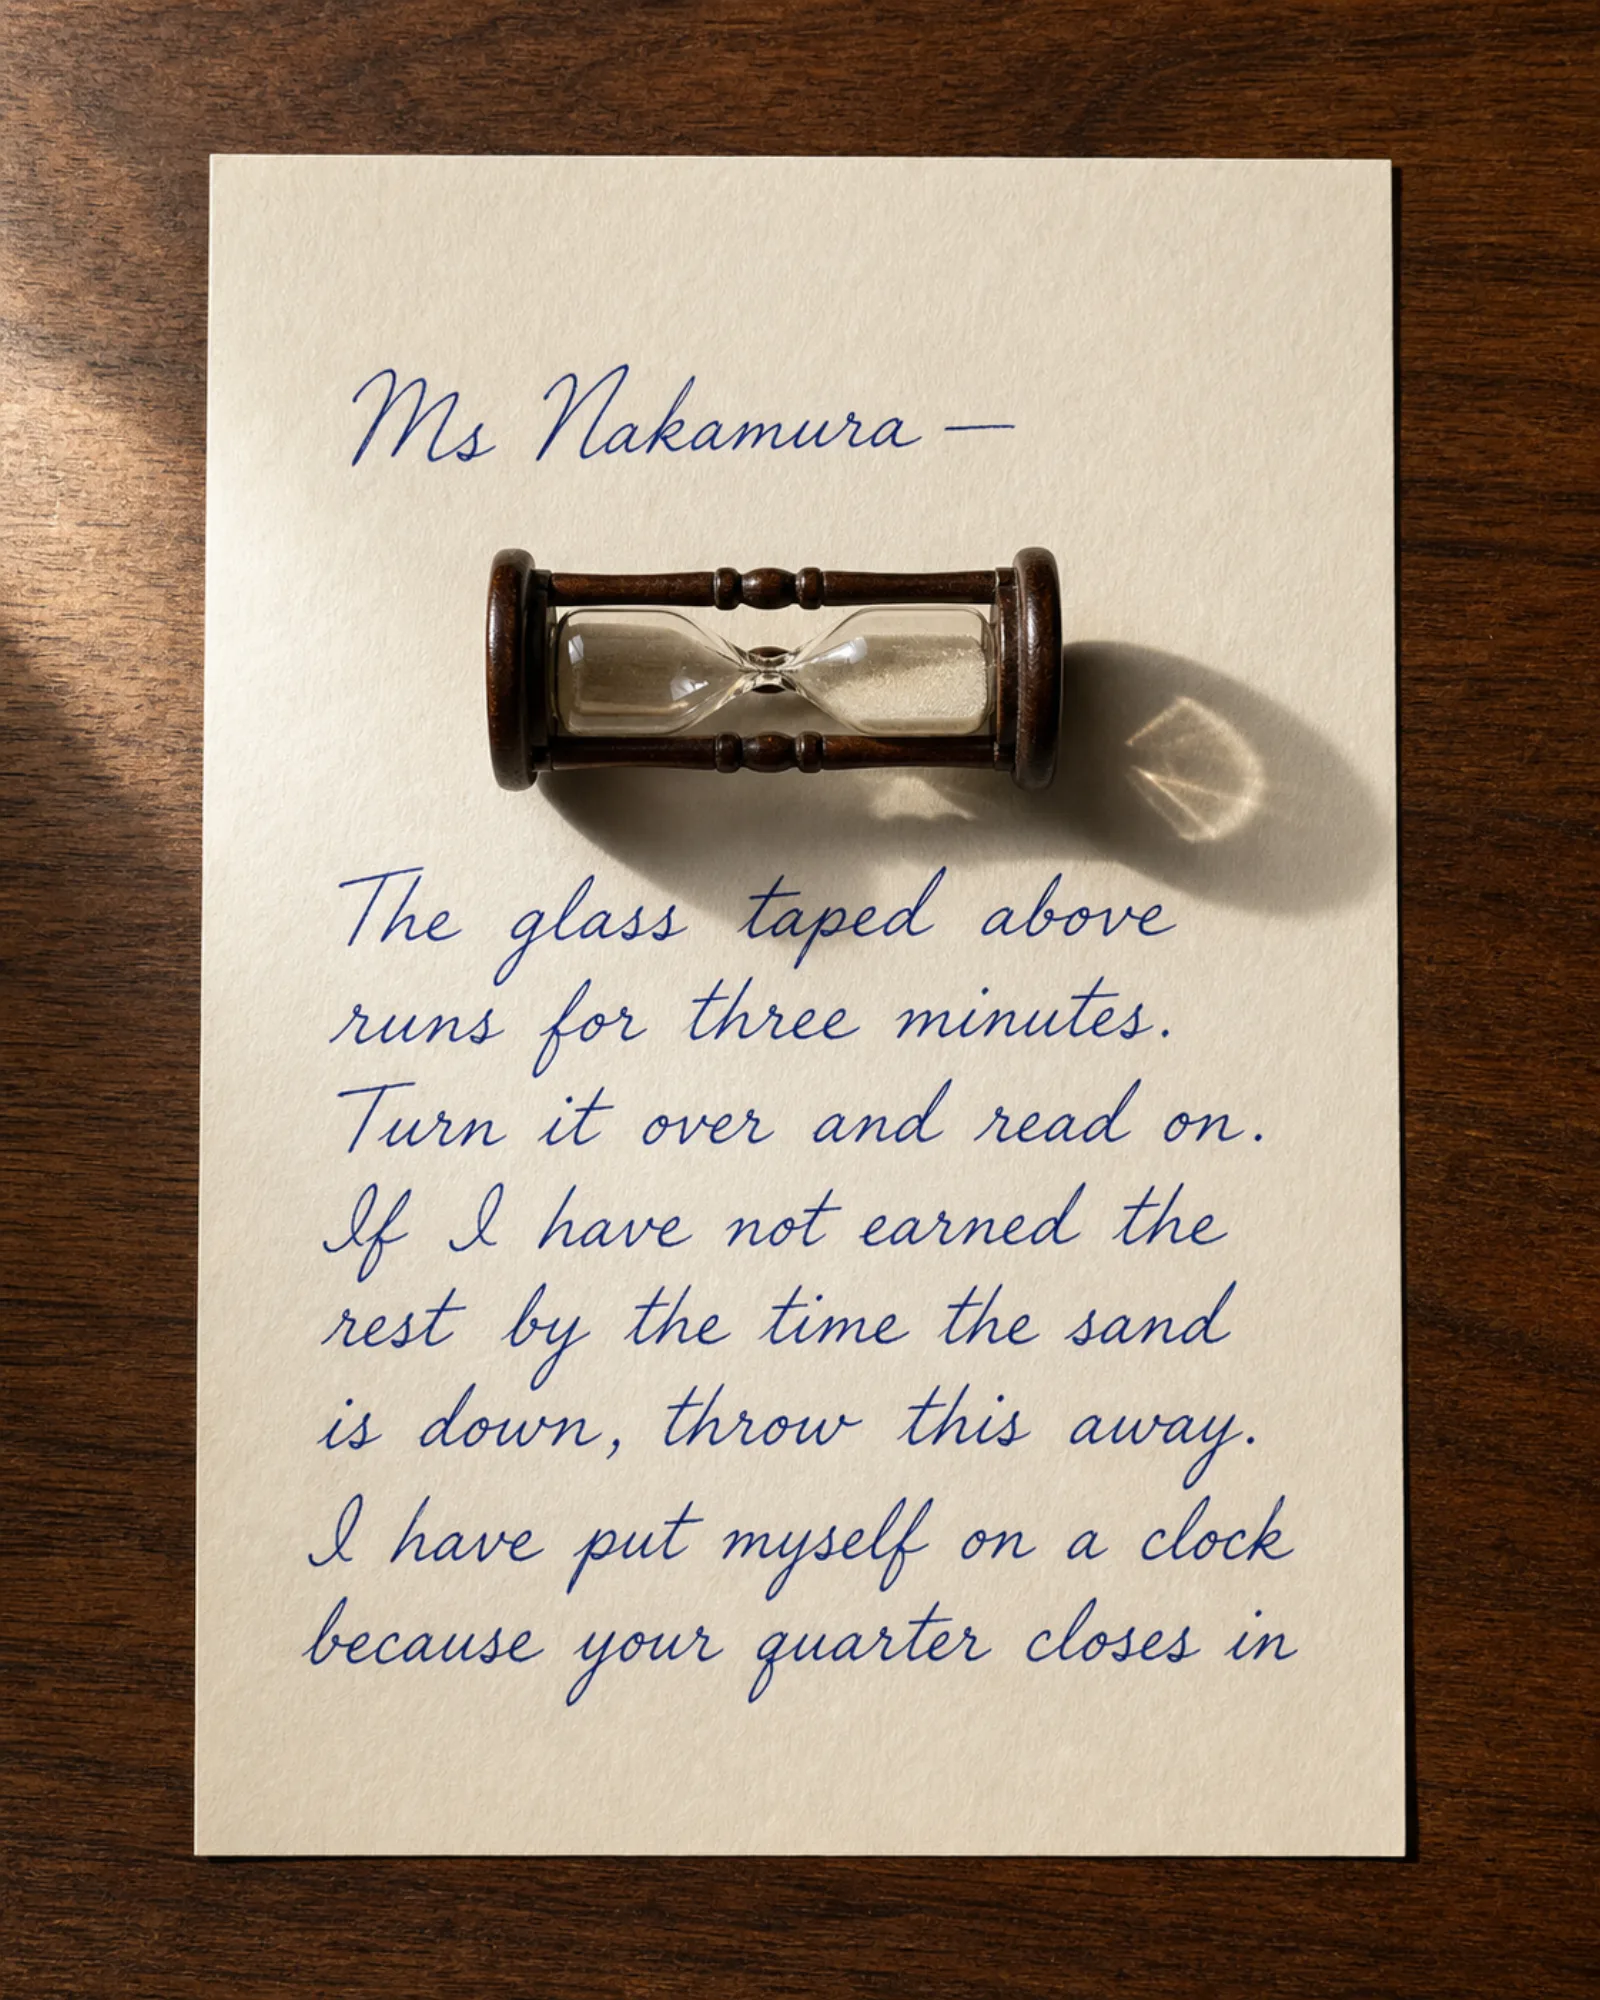 Ms Nakamura —
The glass taped above
runs for three minutes.
Turn it over and read on.
If I have not earned the
rest by the time the sand
is down, throw this away.
I have put myself on a clock
because your quarter closes in